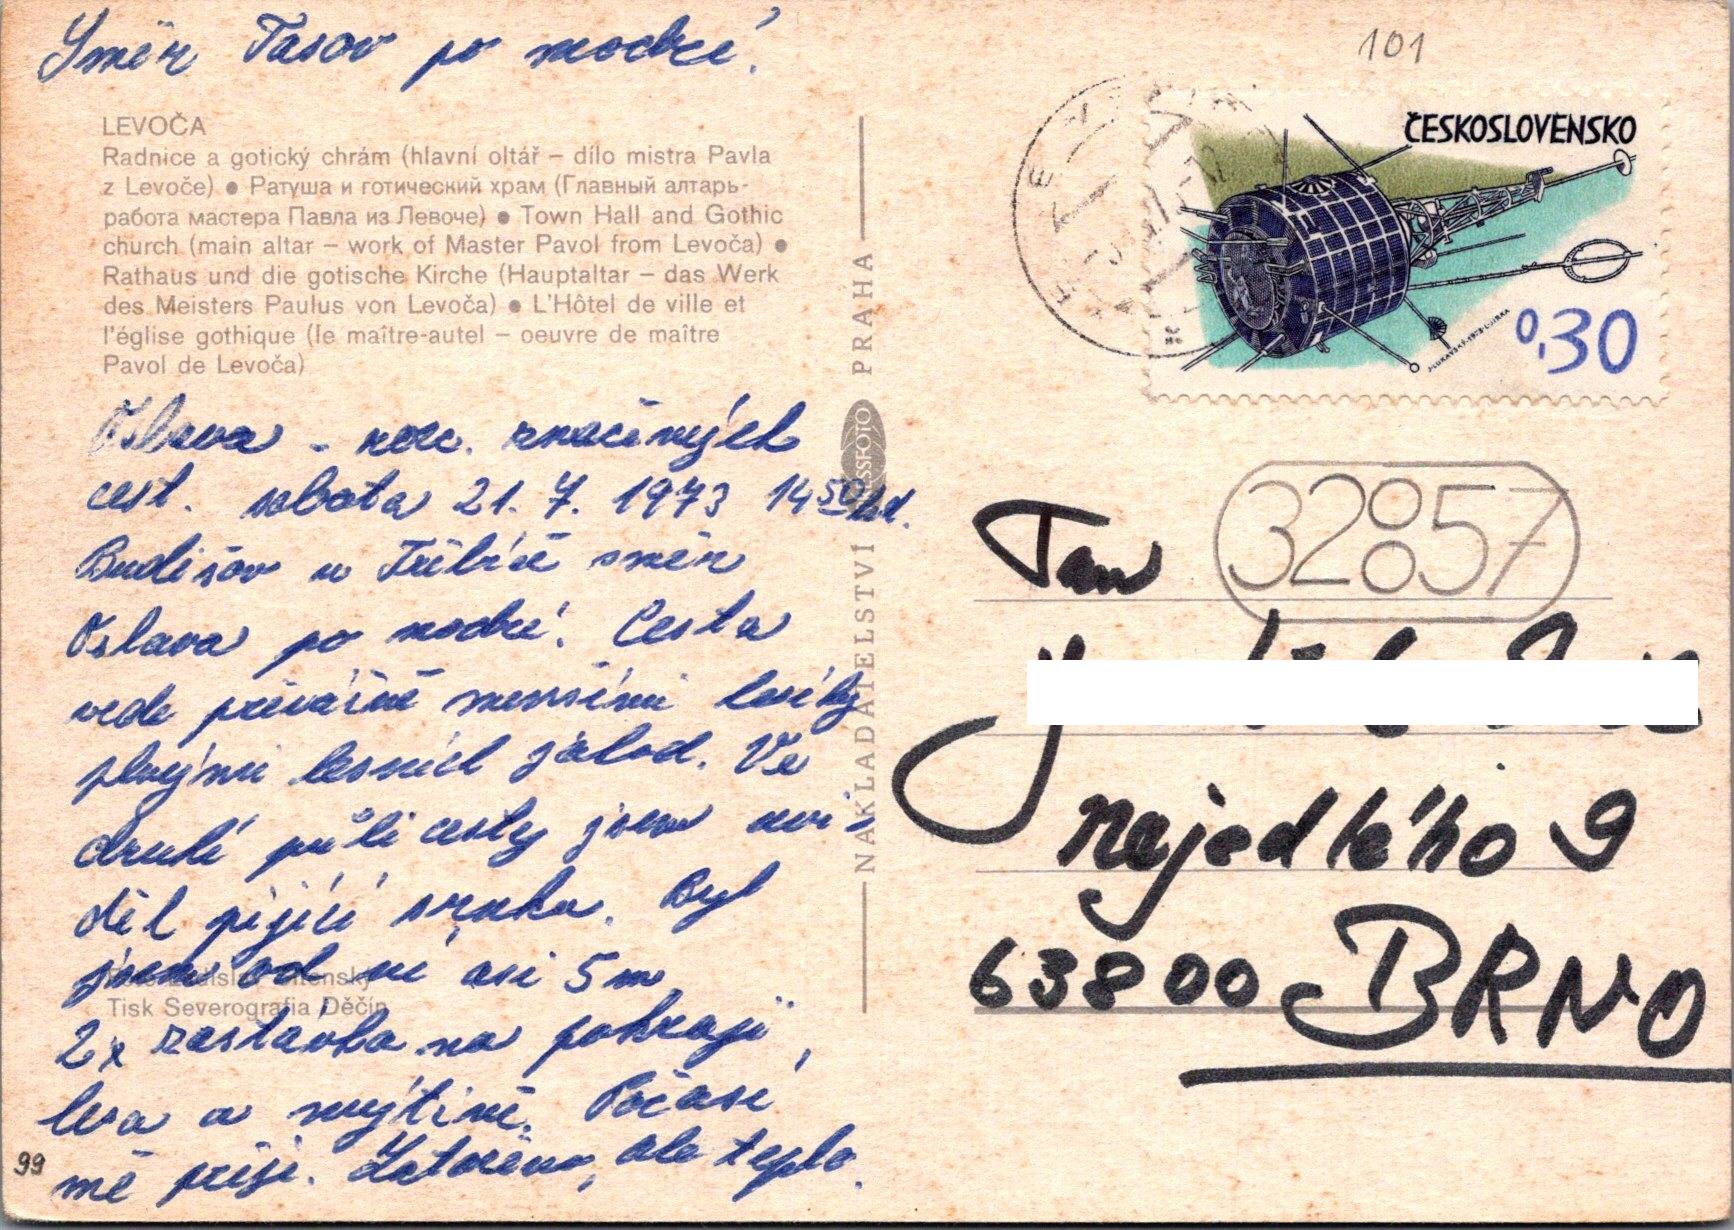 Směr Tasov po modré.
101
LEVOČA
Radnice a gotický chrám (hlavní oltář – dílo mistra Pavla
z Levoče) ● Ратуша и готический храм (Главный алтарь-
работа мастера Павла из Левоче) ● Town Hall and Gothic
church (main altar – work of Master Pavol from Levoča) ●
Rathaus und die gotische Kirche (Hauptaltar – das Werk
des Meisters Paulus von Levoča) ● L'Hôtel de ville et
l'église gothique (le maître-autel – oeuvre de maître
Pavol de Levoča)
ČESKOSLOVENSKO
0,30
NAKLADATELSTVÍ PRAHA
Oslava - roz. značených
cest. sobota 21. 7. 1973 14 50 hd.
Budišov u Třebíče směr
Oslava po modré. Cesta
vede převážně menšími lesíky
plnými lesních jahod. Ve
druhé půli cesty jsem uvi-
děl pijící srnku. Byl
jsem od ní asi 5 m
2x zastávka na pokraji
lesa a mýtině. Počasí
mě přeje. Zataženo, ale teplo.
Tisk Severografia Děčín
99
32857
Nejedlého 9
63800 BRNO